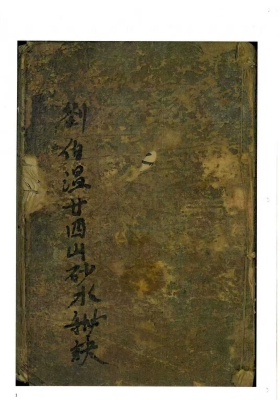 劉伯温廿四山砂水秘訣